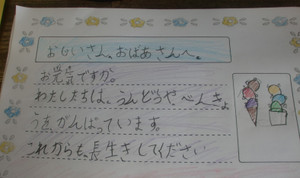 おじいさん、おばあさんへ。
お元気ですか。
わたしたちは、うんどうや、べんきょ
うをがんばっています。
これからも、長生きしてください